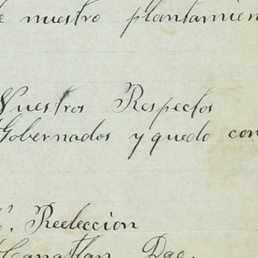 nuestro plantamien
Nuestros Respectos
Gobernados y quedo con
Redeccion
Canatlan Dgo.